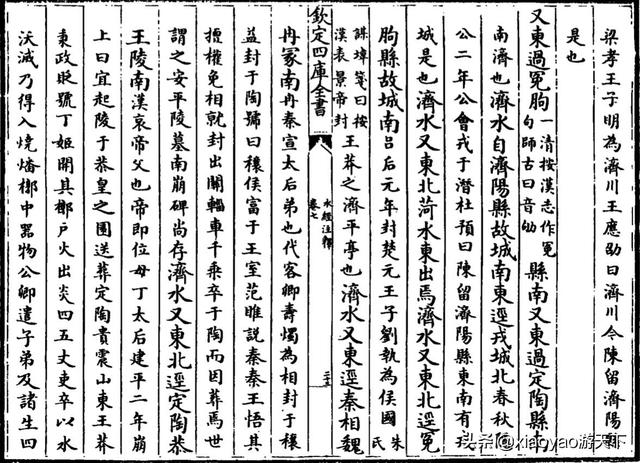 梁孝王子明為濟川王應劭曰濟川今陳留濟陽縣
是也
又東過冤朐一清按漢志作冤句師古曰音劬縣南又東過定陶縣南
南濟也濟水自濟陽縣故城南東逕戎城北春秋隱
公二年公會戎于潛杜預曰陳留濟陽縣東南有戎
城是也濟水又東北菏水東出焉濟水又東北逕冤
朐縣故城南呂后元年封楚元王子劉執為侯國朱氏
㙔箋曰按漢表景帝封王莽之濟平亭也濟水又東逕秦相魏
欽定四庫全書
水經注釋
卷七
冉冢南冉秦宣太后弟也代客卿壽燭為相封于穰
益封于陶號曰穰侯富于王室范雎說秦秦王悟其
擅權免相就封出關輜車千乘卒于陶而因葬焉世
謂之安平陵墓南崩碑尚存濟水又東北逕定陶恭
王陵南漢哀帝父也帝即位母丁太后建平二年崩
上曰宜起陵于恭皇之園送葬定陶貴震山東王莽
秉政貶號丁姬開其槨戶火出炎四五丈吏卒以水
沃滅乃得入燒燔槨中器物公卿遣子弟及諸生四
头条@xiaoyao游天下